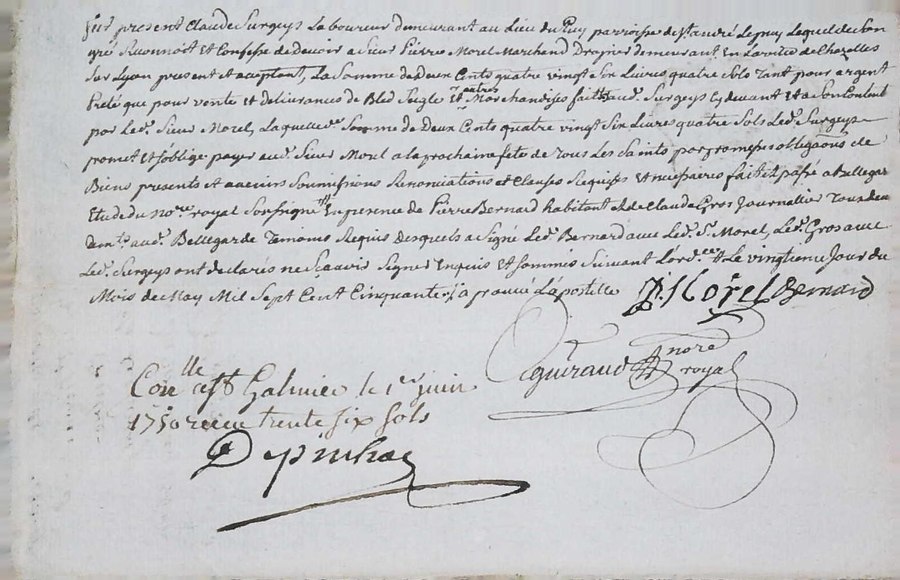 fut present Claude Surgeys Laboureur demeurant au Lieu du Puy parroisse de St andré Lepuy Lequel de son
gré Reconnoit Et Confesse de devoir a Sieur Pierre Morel Marchand Drapier demeurant En la ville de Chazelles
Sur Lyon present et acceptant, La Somme de deux Cents quatre vingt Six Livres quatre Sols tant pour argent
Preté que pour vente et delivrances de Bled Seigle Et autres Marchandises faitte aud. Surgeys Cy devant Et a Son Contentt
par Led. Sieur Morel, Laquelle Somme de Deux Cents quatre vingt Six Livres quatre Sols Led. Surgeys
promet Et s'oblige payer aud. Sieur Morel a la prochaine fete de Tous Les Saints par promesses obligaons de
Biens presents Et avenirs Soumissions Renonciations et Clauses Requises Et necessaires fait et passé a Bellegarde
Etude du nore royal Soussigné En presence de Pierre Bernard habitant et de Claude Gros Journalier Tous deux
demts. aud. Bellegarde Temoins Requis Desquels a Signé Led. Bernard avec Led. Sr. Morel, Led. Gros avec
Led. Surgeys ont declarés ne Sçavoir Signer Enquis Et Sommés Suivant L'ordce. Et Le vingtieme Jour du
Mois de May Mil Sept Cent Cinquante / aprouvé L'apostille P. Morel Bernard
Guiraud nore royal
Conlle a St Galmier le 1er juin
1750 reçu trente six sols
Depinhac